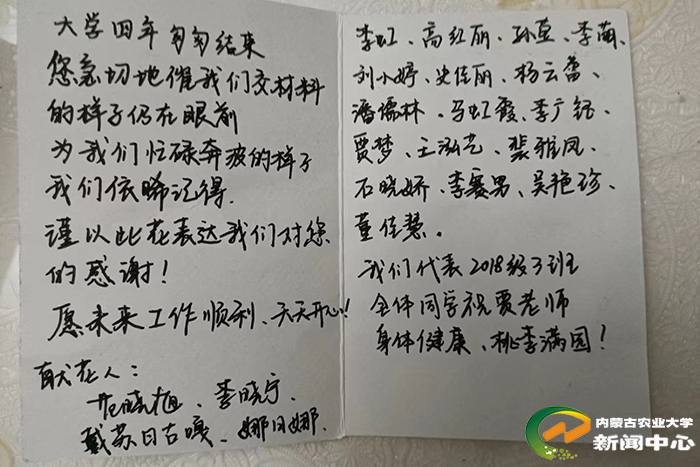 大学四年匆匆结束
您急切地催我们交材料
的样子仍在眼前
为我们忙碌奔波的样子
我们依晰记得.
谨以此花表达我们对您
的感谢!
愿未来工作顺利、天天开心!
献花人:
范晓旭、李晓宁、
戴苏日古嘎、娜日娜、
李虹、高红丽、孙莫、李菊、
刘小婷、史佳丽、杨云蕾、
潘儒林、马虹霞、李广钰、
贾梦、王泓艺、裴雅凤、
石晓娇、李赛男、吴艳珍、
董佳慧。
我们代表2018级3班
全体同学祝贾老师
身体健康、桃李满园!
内蒙古农业大学
新闻中心